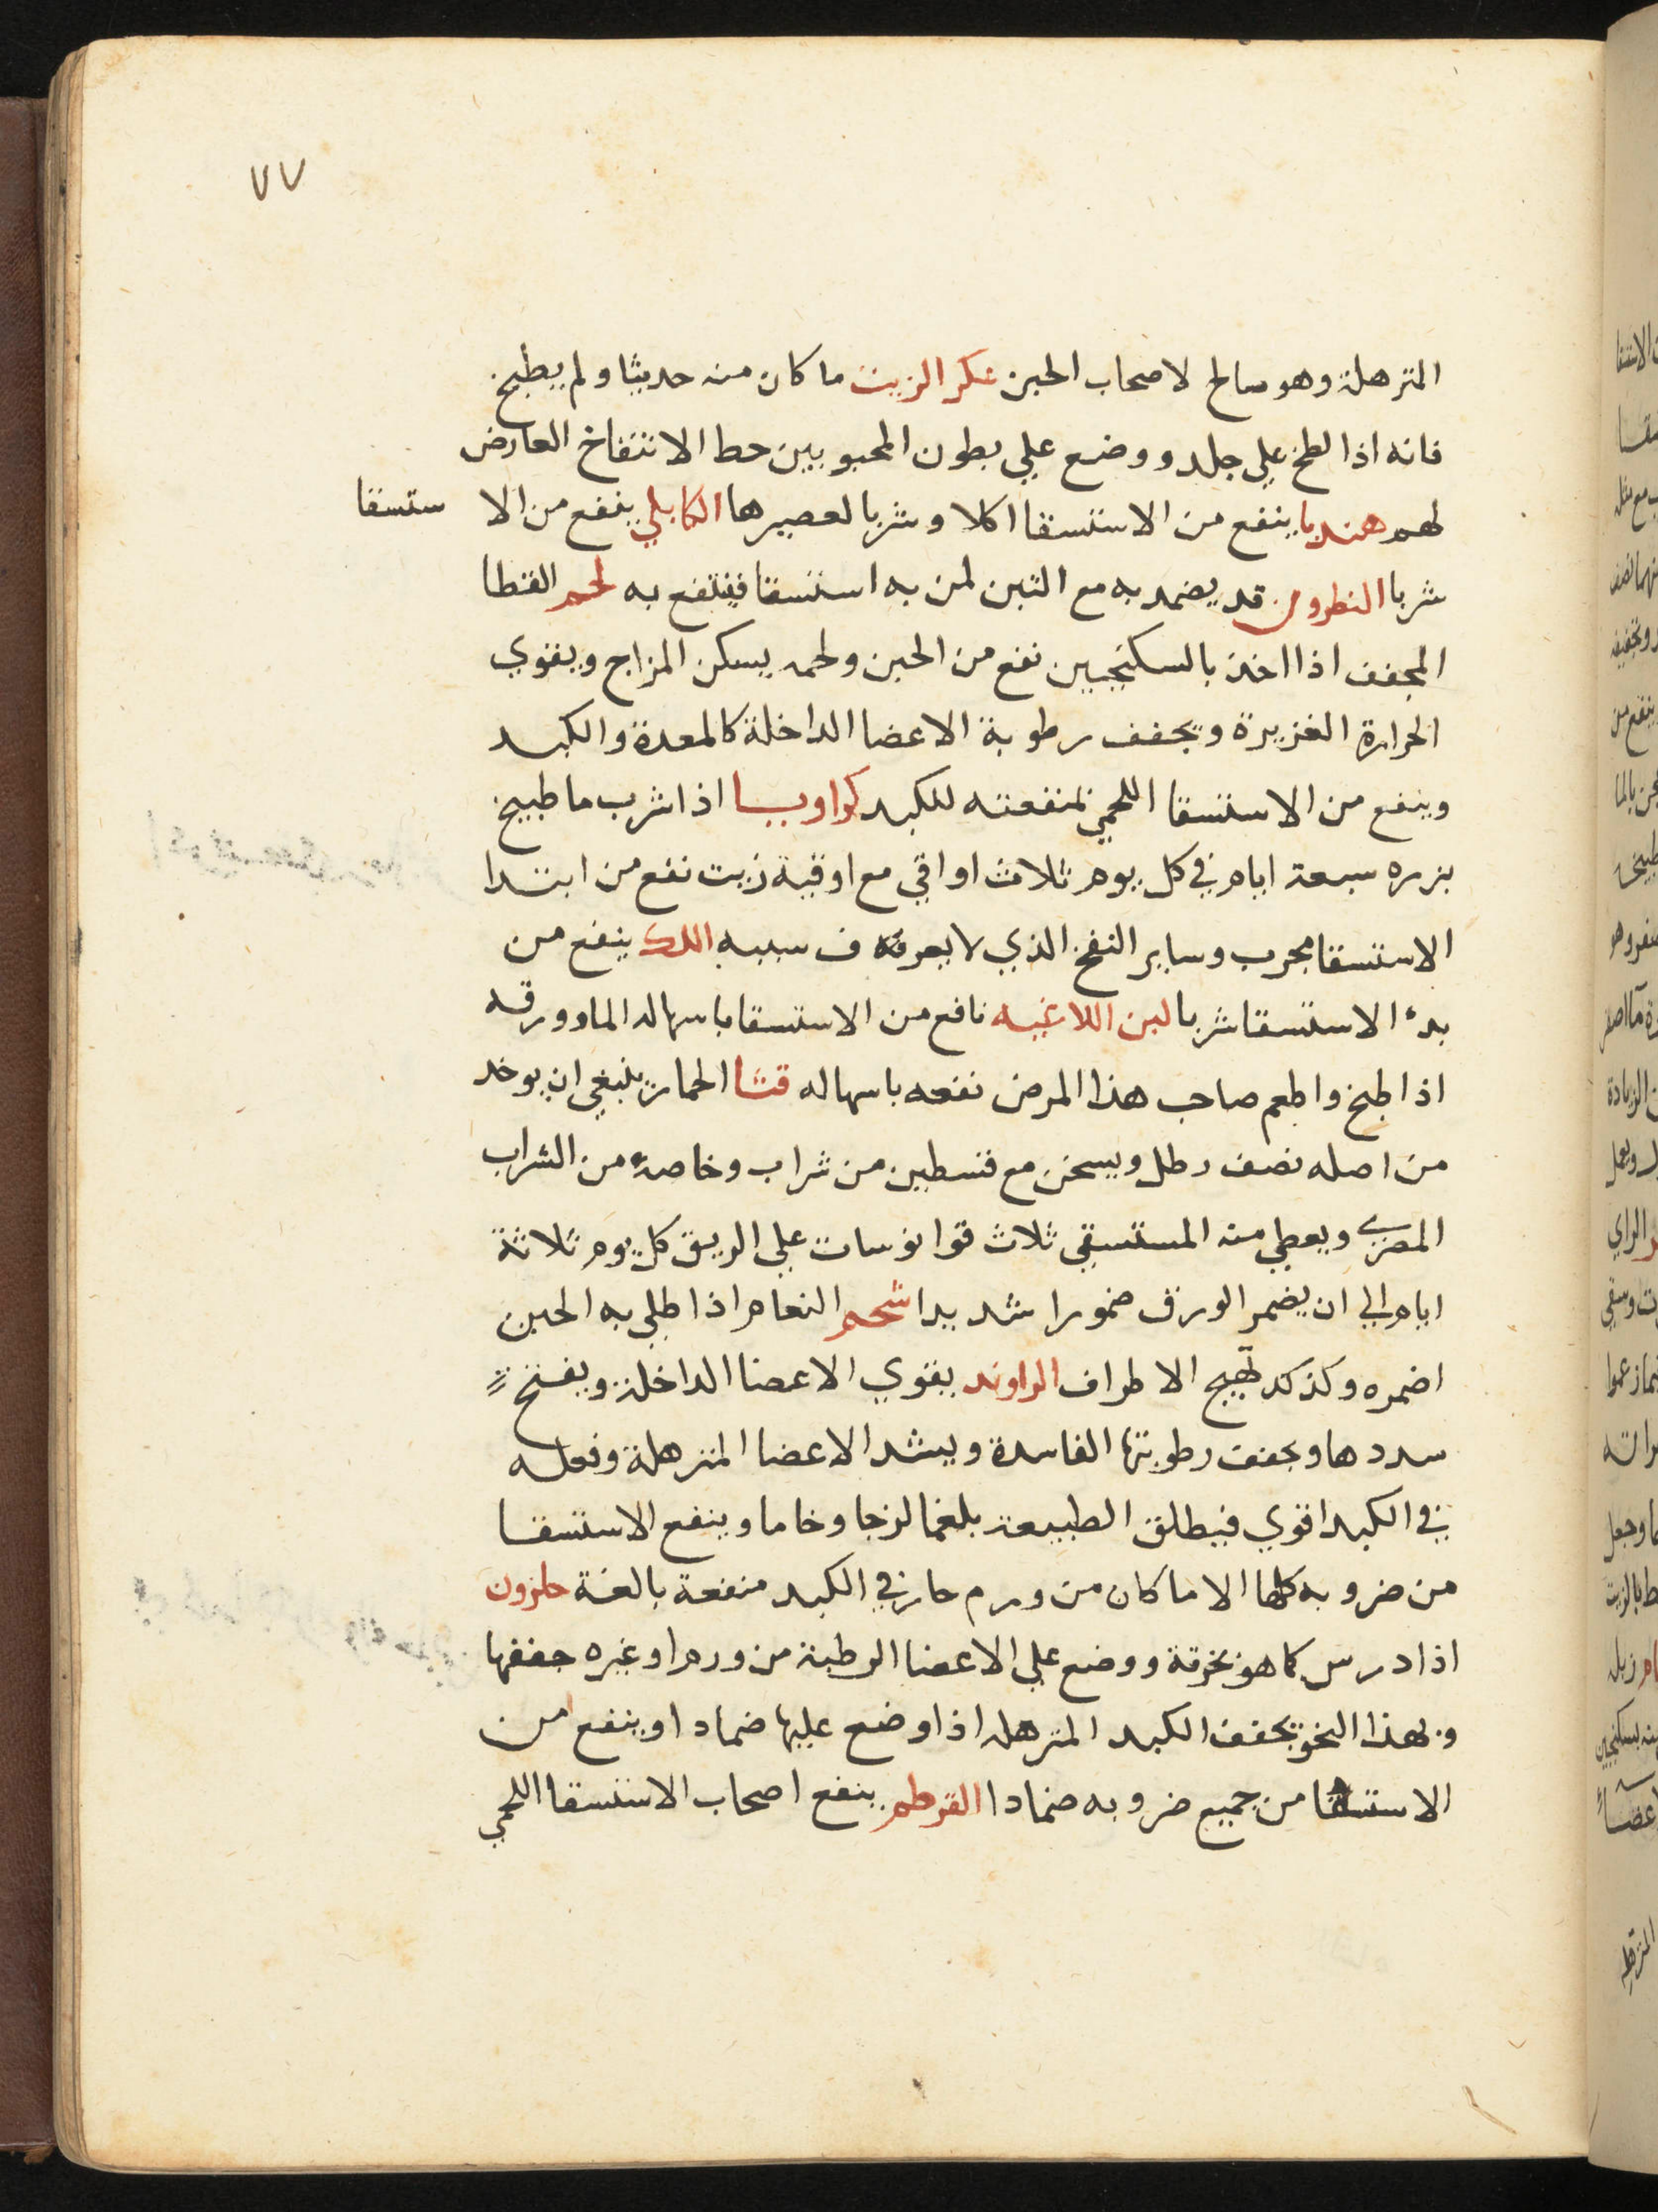 ٧٧
المترهلة وهو صالح لاصحاب الحبن عكر الزيت ما كان منه حديثا ولم يطبخ
فانه اذا لطخ علي جلد ووضع علي بطون المحبوبين حط الانتفاخ العارض
لهم هندبا ينفع من الاستسقا اكلا وشربا لعصيرها الكابلي ينفع من الا ستسقا
شربا النطرون قد يضمد به مع التين لمن به استسقا فينتفع به لحم القنطا
المجفف اذا اخذ بالسكنجبين نفع من الحبن ولحمه يسكن المزاج ويقوي
الحرارة الغزيرة ويجفف رطوبة الاعضا الداخلة كالمعدة والكبد
وينفع من الاستسقا اللحمي لمنفعته للكبد كراويا اذا شرب ما طبيخ
بزره سبعة ايام في كل يوم ثلاث اواقي مع اوقية زيت نفع من ابتدا
الاستسقا مجرب وساير النفخ الذي لا يعرف سببه اللك ينفع من
بدء الاستسقا شربا لبن اللاغيه نافع من الاستسقا باسهاله الما وورقه
اذا طبخ واطعم صاحب هذا المرض نفعه باسهاله قثا الحمار ينبغي ان يوخد
من اصله نصف رطل ويسحن مع قسطين من شراب وخاصة من الشراب
المصري ويعطي منه المستسقي ثلاث قوانوسات علي الريق كل يوم ثلاثة
ايام الي ان يضمر الورق ضمورا شديدا شحم النعام اذا طلي به الحبن
اضمره وكذلك تهيج الاطراف الراوند يقوي الاعضا الداخلة ويفتح
سددها ويجفف رطوبتها الفاسدة ويشد الاعضا المترهلة وفعله
في الكبد اقوي فيطلق الطبيعة بلغما لزجا وخاما وينفع الاستسقا
من ضروبه كلها الا ما كان من ورم حار في الكبد منفعة بالغة حلزون
اذا درس كما هو بخرقة ووضع علي الاعضا الرطبة من ورم او غيره جففها
وبهذا النحو يجفف الكبد المترهله اذا وضع عليها ضمادا وينفع من
الاستسقا من جميع ضروبه ضمادا القرطم ينفع اصحاب الاستسقا اللحمي